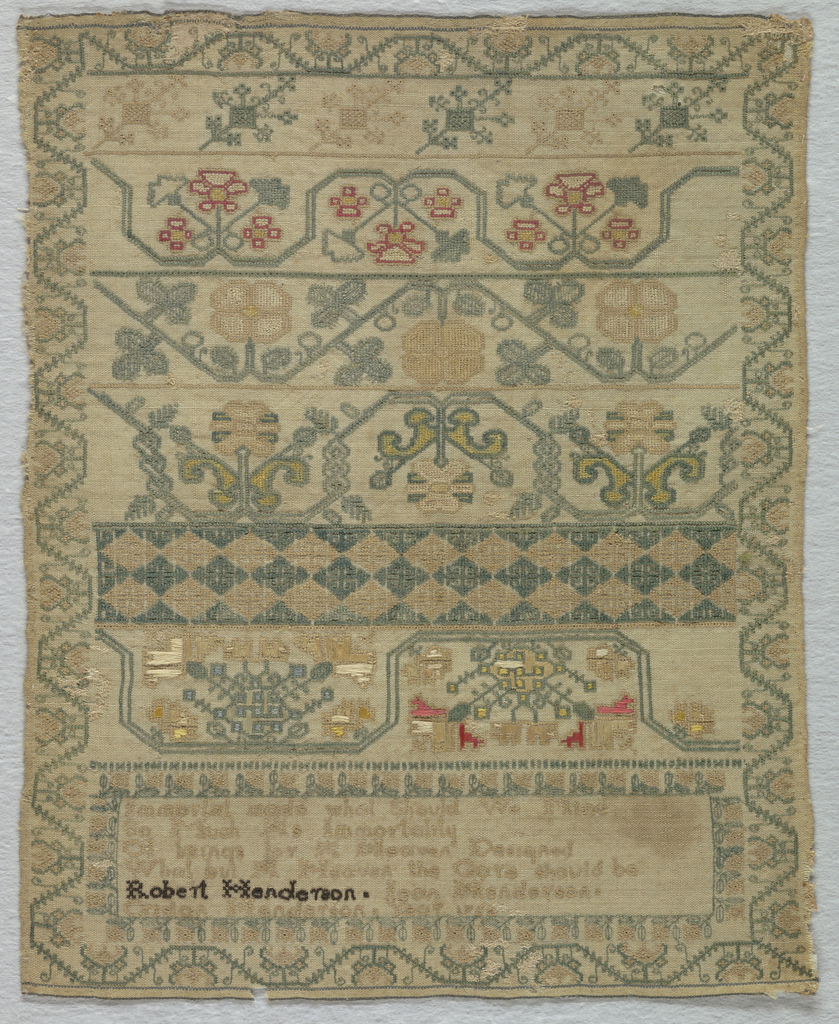 Immortal made what Should We Mind
So Much As immortality
Of beings for A Heaven Designed
What but A Heaven the Care should be
Robert Henderson. Jean Henderson.
Henderson.